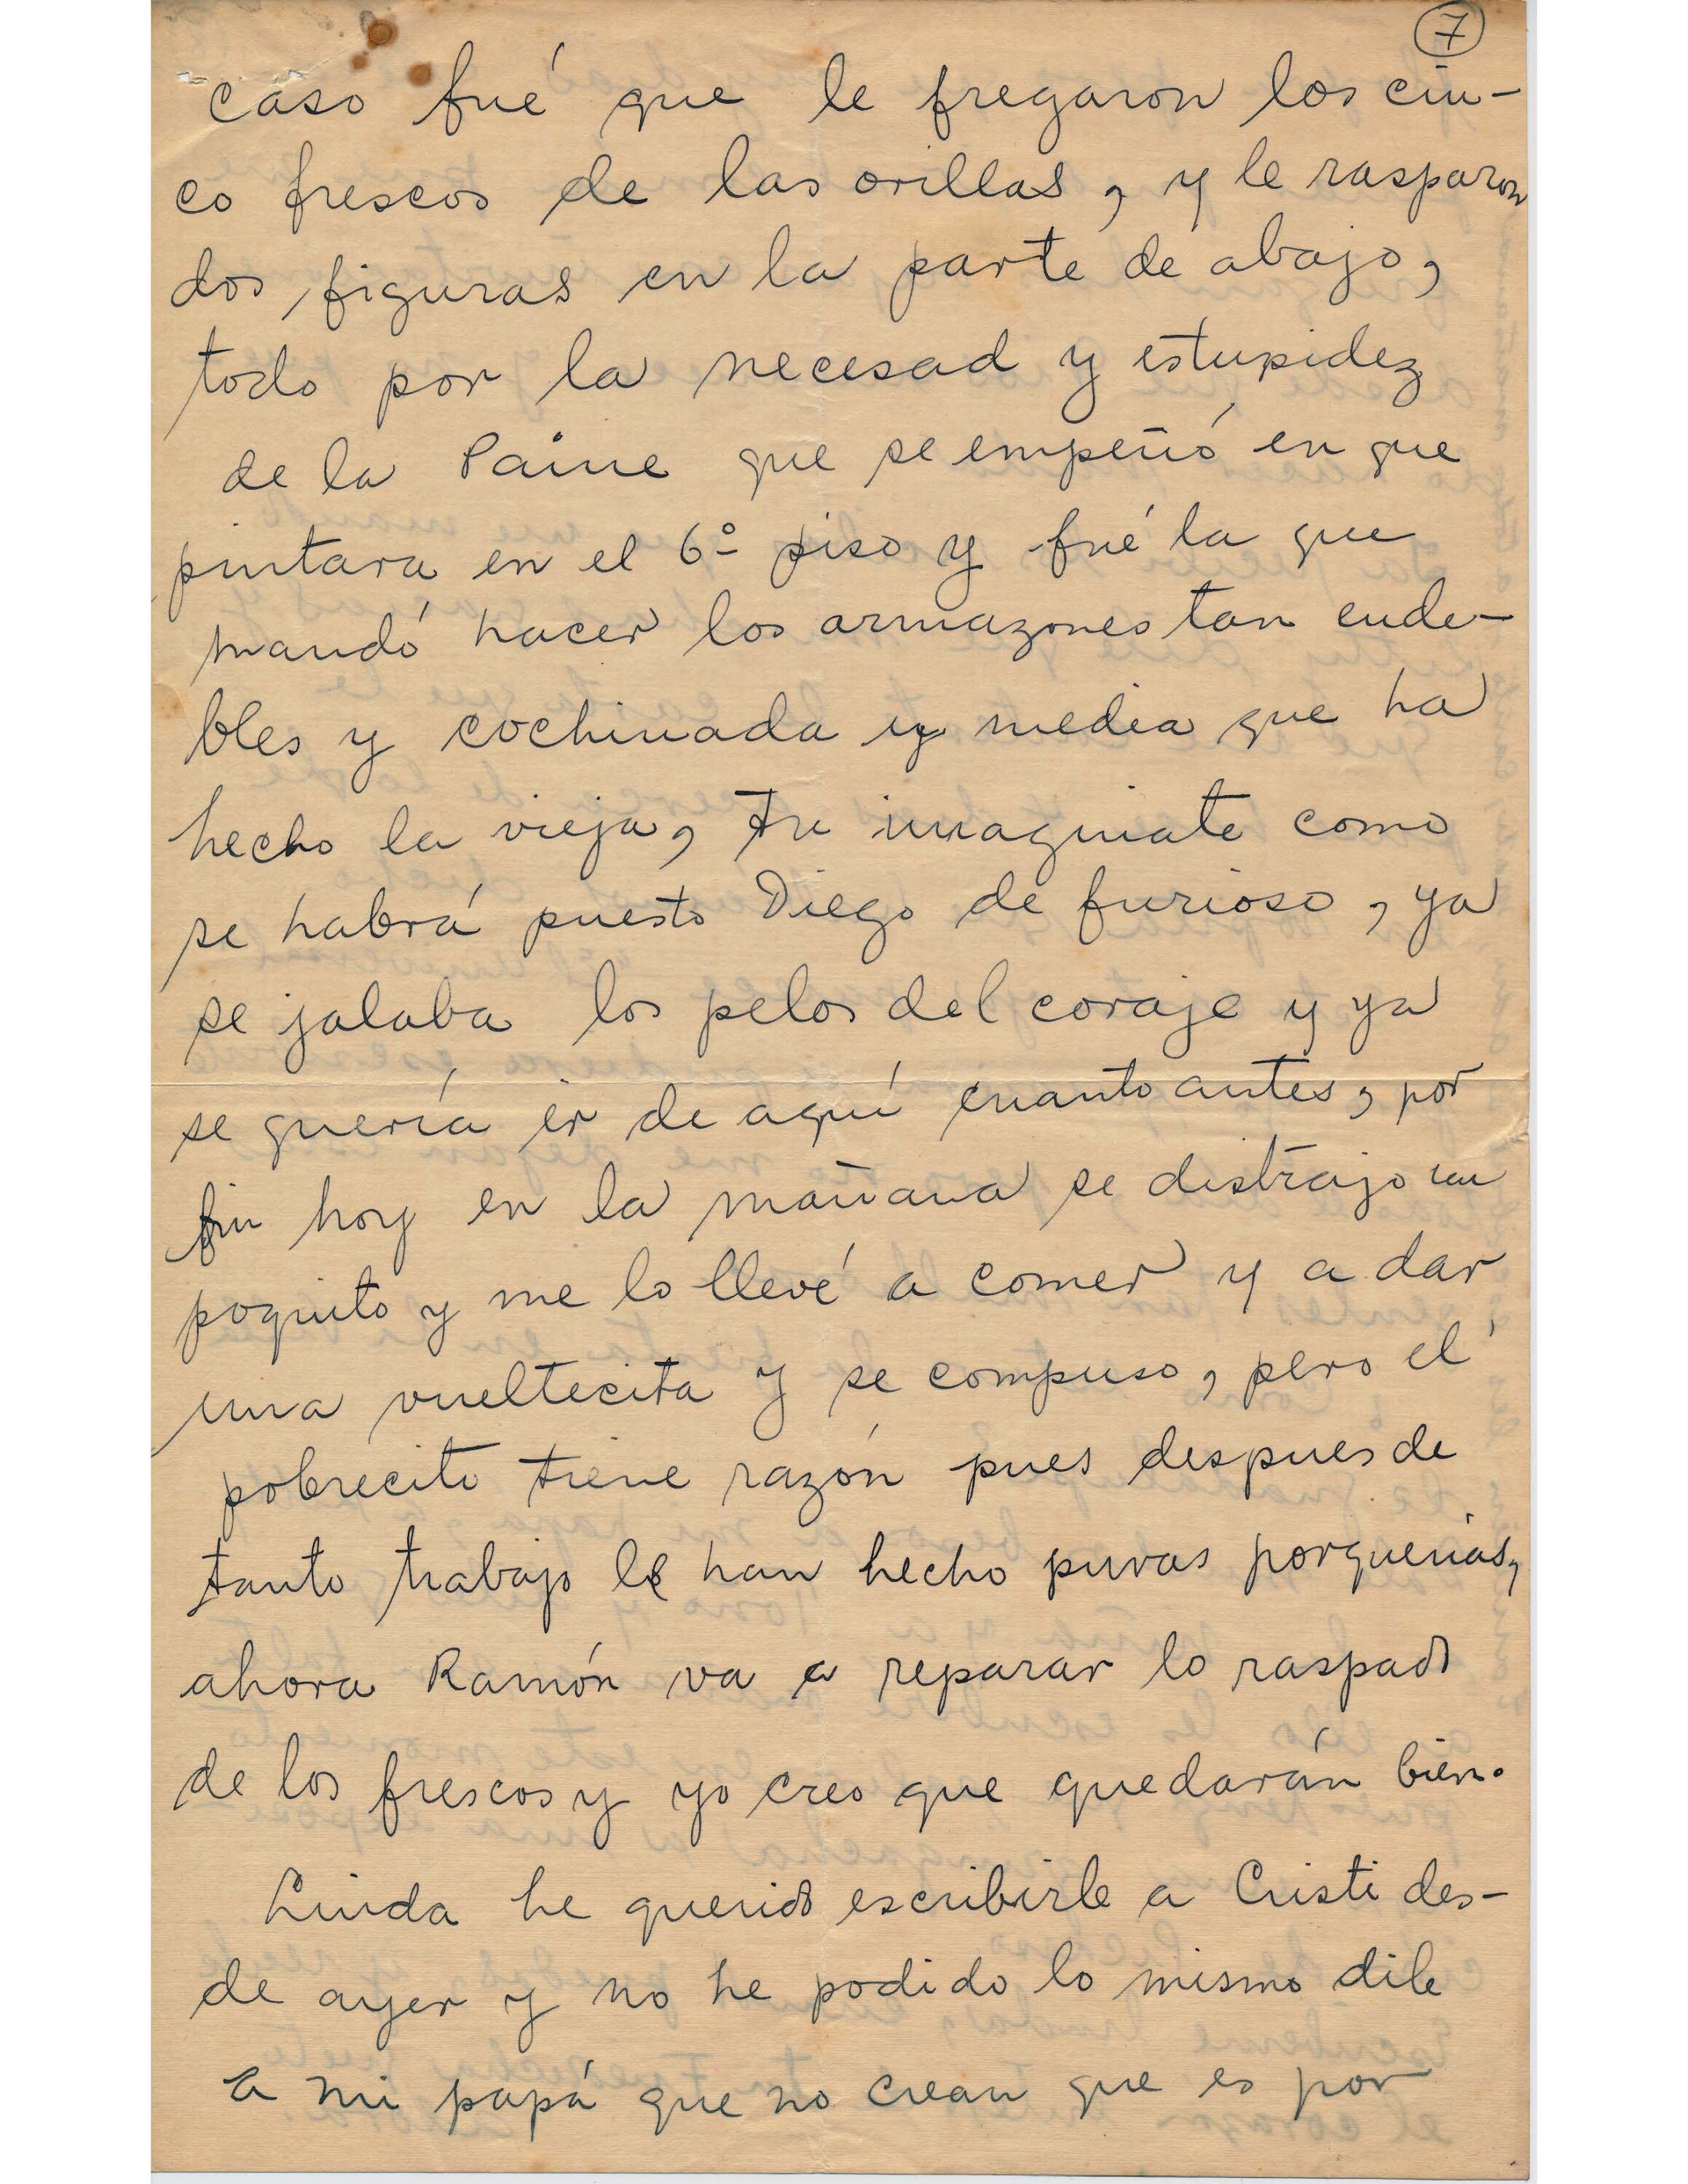 7
caso fué que le fregaron los cin-
co frescos de las orillas, y le rasparon
dos figuras en la parte de abajo,
todo por la necesad y estupidez
de la Paine que se empeñó en que
pintara en el 6º piso y fué la que
mandó hacer los armazones tan ende-
bles y cochinada y media que ha
hecho la vieja, tu imaginate como
se habrá puesto Diego de furioso, ya
se jalaba los pelos del coraje y ya
se quería ir de aquí cuanto antes, por
fin hoy en la mañana se distrajo un
poquito y me lo llevé a comer y a dar
una vueltecita y se compuso, pero él
pobrecito tiene razón pues despues de
tanto trabajo le han hecho puras porquerías,
ahora Ramón va a reparar lo raspado
de los frescos y yo creo que quedarán bien.
Linda he querido escribirle a Cristi des-
de ayer y no he podido lo mismo dile
a mi papá que no crean que es por